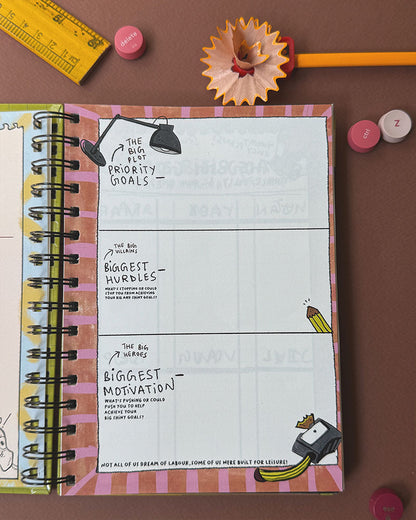 delete
Z
ctrl
THE
BIG
PLOT
PRIORITY
GOALS—
THE BIG
VILLAINS
BIGGEST
HURDLES—
WHAT'S STOPPING OR COULD
STOP YOU FROM ACHIEVING
YOUR BIG AND SHINY GOALS?
THE BIG
HEROES
BIGGEST
MOTIVATION—
WHAT'S PUSHING OR COULD
PUSH YOU TO HELP
ACHIEVE YOUR
BIG SHINY GOALS?
NOT ALL OF US DREAM OF LABOUR, SOME OF US WERE BUILT FOR LEISURE!